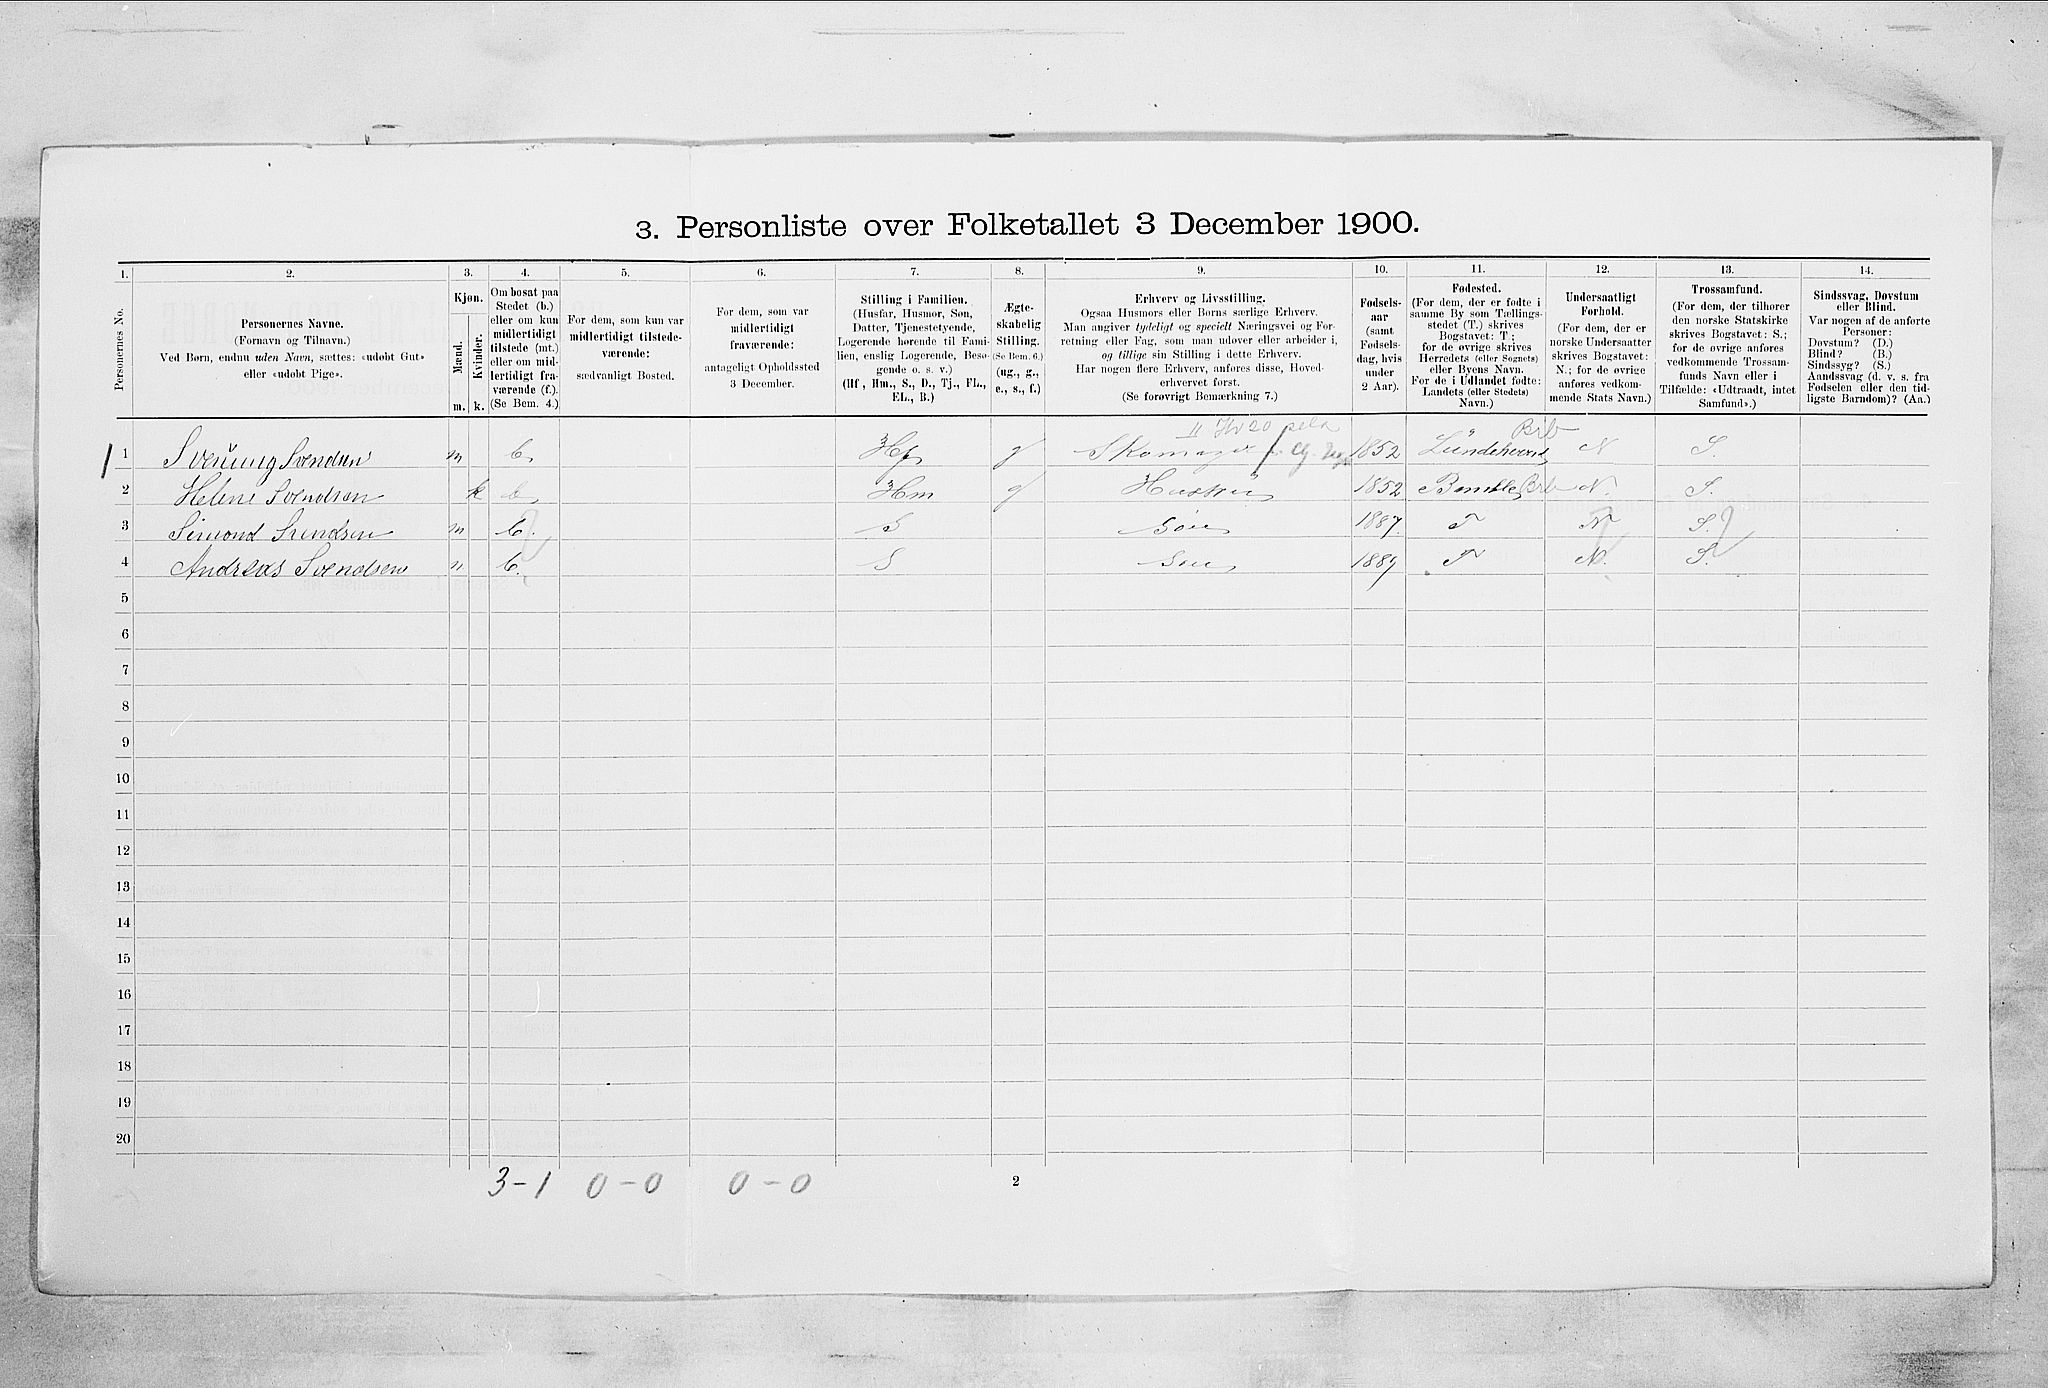 3. Personliste over Folketallet 3 December 1900.
1. 2. 3. 4. 5. 6. 7. 8. 9. 10. 11. 12. 13. 14.
Personernes No.
Personernes Navne.
(Fornavn og Tilnavn.)
Ved Børn, endnu uden Navn, sættes: «udøbt Gut»
eller «udøbt Pige».
Kjøn.
Mænd.
Kvinder.
m. k.
Om bosat paa
Stedet (b.)
eller om kun
midlertidigt
tilstede (mt.)
eller om mid-
lertidigt fra-
værende (f.).
(Se Bem. 4.)
For dem, som kun var
midlertidigt tilstede-
værende:
sædvanligt Bosted.
For dem, som var
midlertidigt
fraværende:
antageligt Opholdssted
3 December.
Stilling i Familien.
(Husfar, Husmor, Søn,
Datter, Tjenestetyende,
Logerende hørende til Fami-
lien, enslig Logerende, Besø-
gende o. s. v.)
(Hf., Hm., S., D., Tj., FL.,
EL., B.)
Ægte-
skabelig
Stilling.
(Se Bem. 6.)
(ug., g.,
e., s., f.)
Erhverv og Livsstilling.
Ogsaa Husmors eller Børns særlige Erhverv.
Man angiver tydeligt og specielt Næringsvei og For-
retning eller Fag, som man udøver eller arbeider i,
og tillige sin Stilling i dette Erhverv.
Har nogen flere Erhverv, anføres disse, Hoved-
erhvervet først.
(Se forøvrigt Bemærkning 7.)
Fødsels-
aar
(samt
Fødsels-
dag, hvis
under
2 Aar).
Fødested.
(For dem, der er fødte i
samme By som Tællings-
stedet (T.) skrives
Bogstavet: T.;
for de øvrige skrives
Herredets (eller Sognets)
eller Byens Navn.
For de i Udlandet fødte:
Landets (eller Stedets)
Navn.)
Undersaatligt
Forhold.
(For dem, der er
norske Undersaatter
skrives Bogstavet:
N.; for de øvrige
anføres vedkom-
mende Stats Navn.)
Trossamfund.
(For dem, der tilhører
den norske Statskirke
skrives Bogstavet: S.;
for de øvrige anføres
vedkommende Trossam-
funds Navn eller i
Tilfælde: «Udtraadt, intet
Samfund».)
Sindssvag, Døvstum
eller Blind.
Var nogen af de anførte
Personer:
Døvstum? (D.)
Blind? (B.)
Sindssyg? (S.)
Aandssvag (d. v. s. fra
Fødselen eller den tid-
ligste Barndom)? (Aa.)
1 1 Svenung Svendsen m b. Hf g Skomager 1852 N S.
2 Helene Svendsen k b. Hm g Hustru 1852 Bamble Brb N. S.
3 Simond Svendsen m b. S Søn 1887. T N S.
4 Andreas Svendsen b. S Søn 1889 T N. S.
5
6
7
8
9
10
11
12
13
14
15
16
17
18
19
20
3-1 0-0 0-0 2